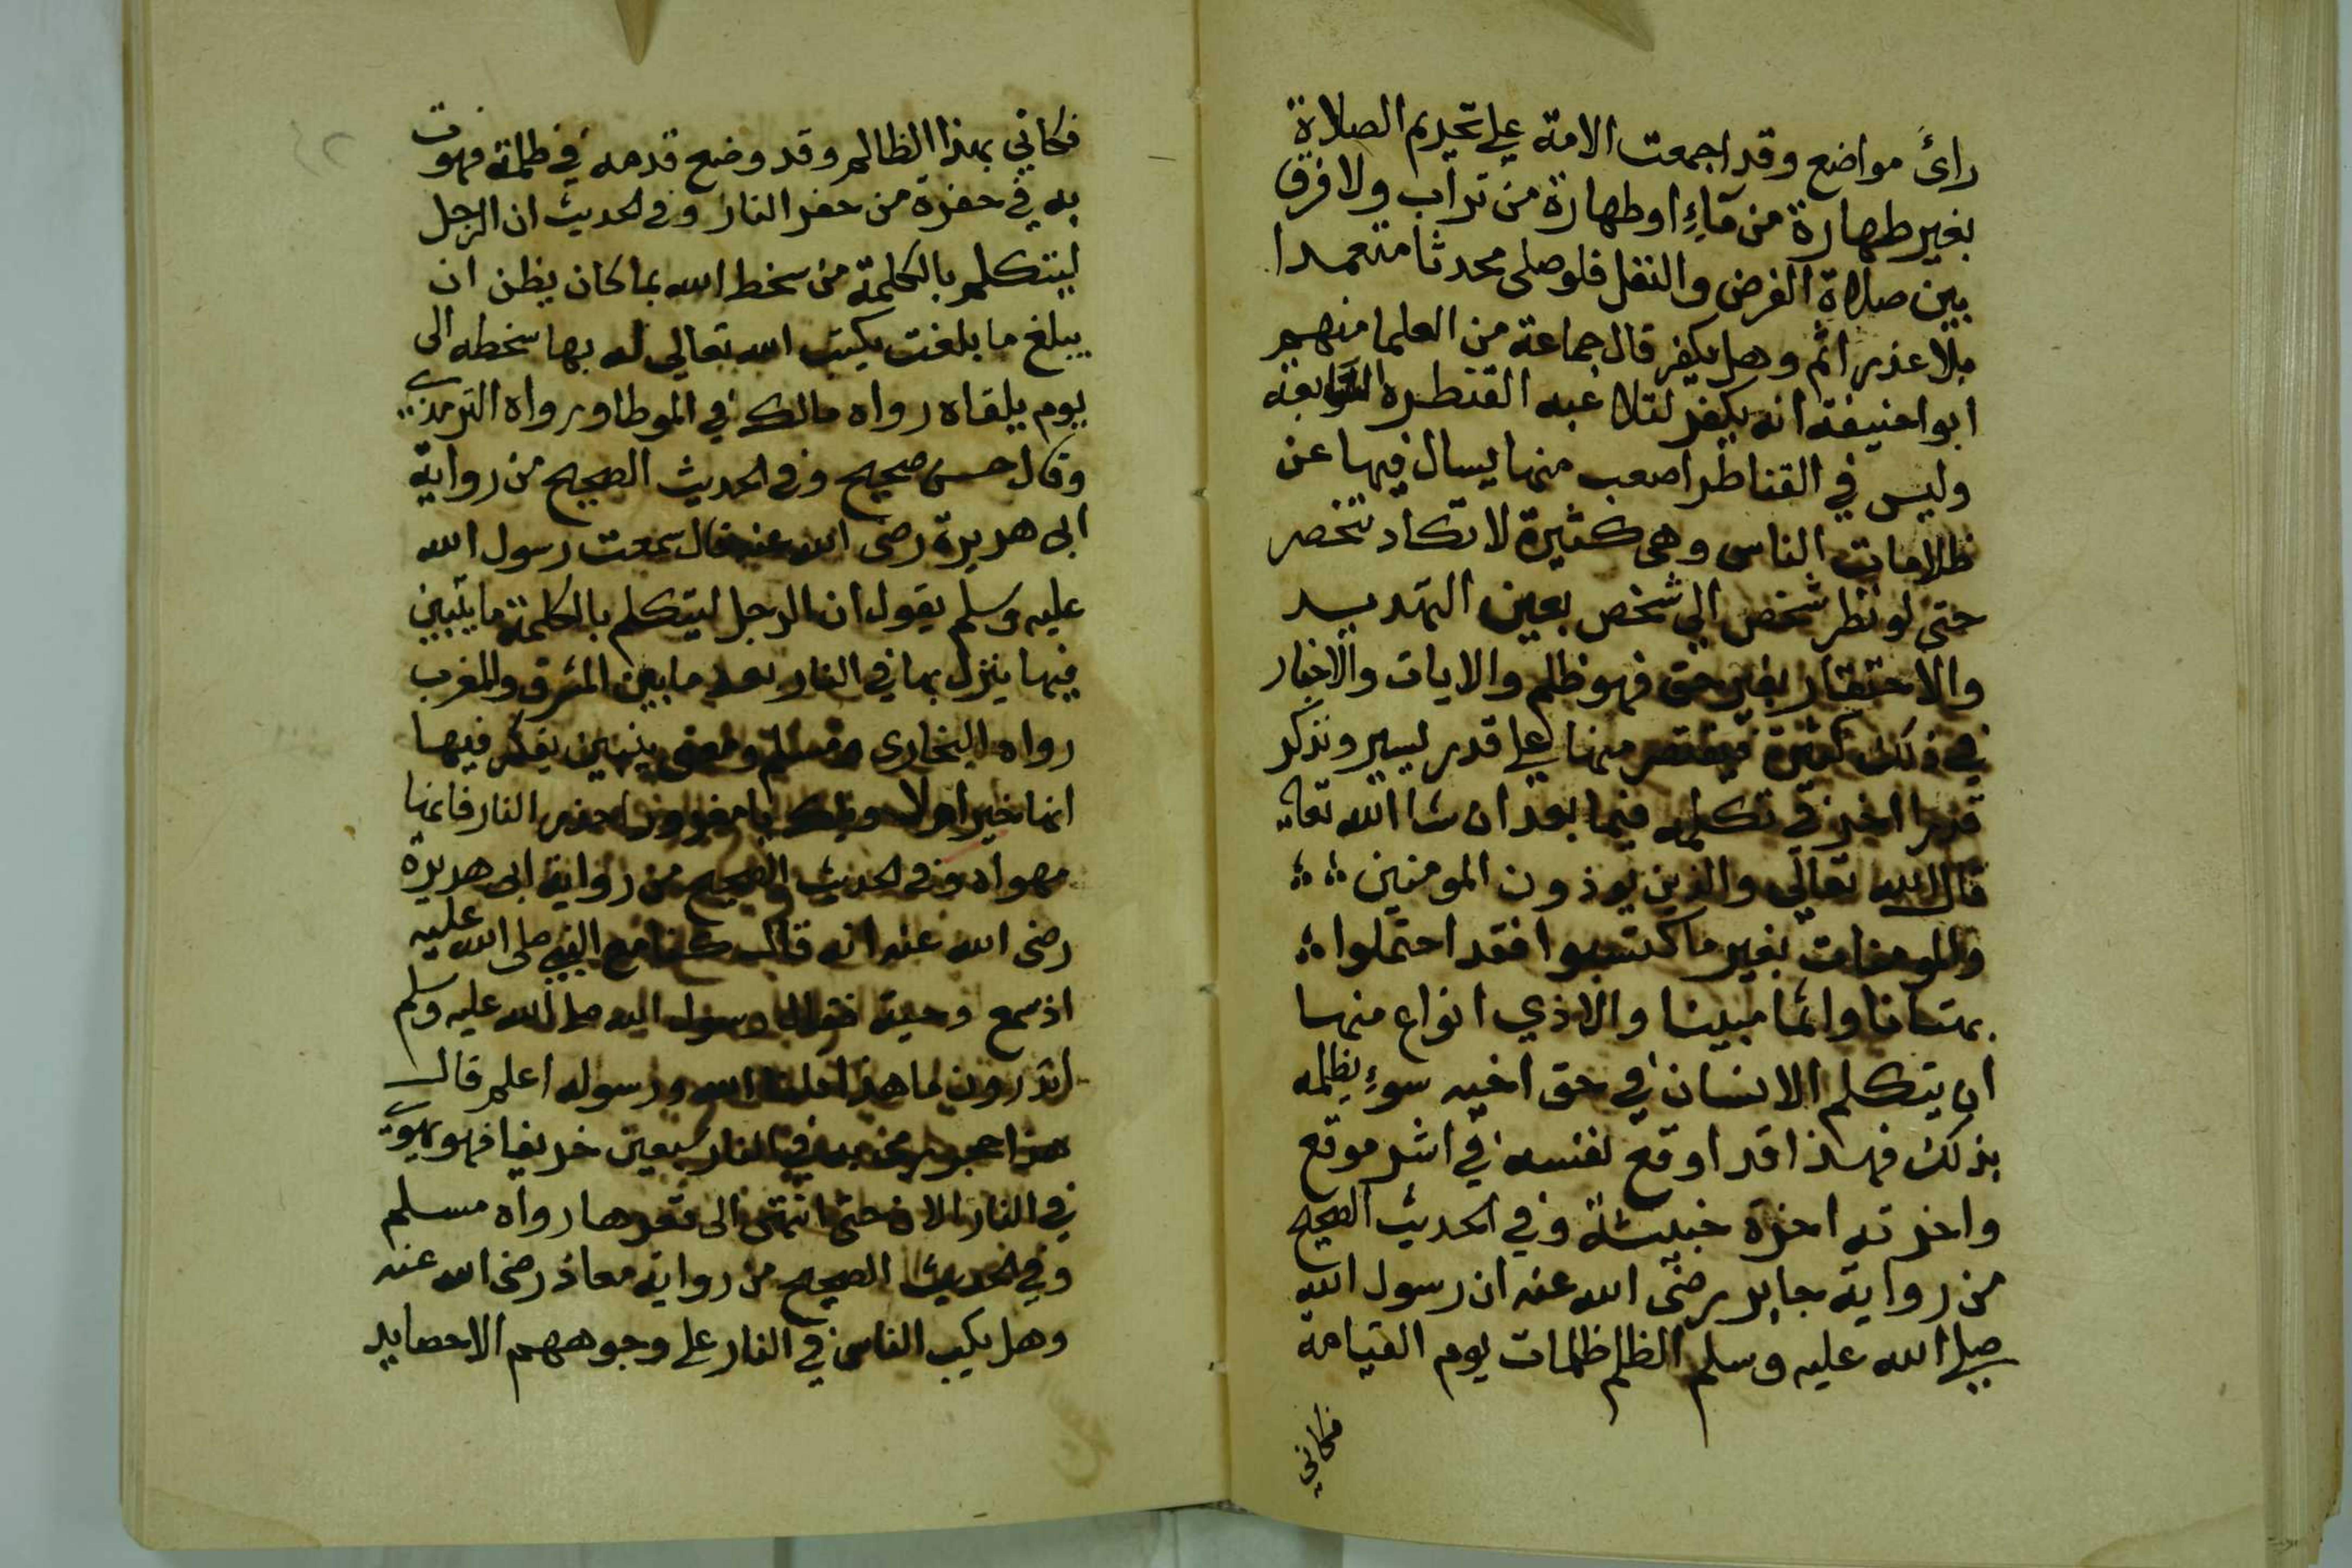 رائ مواضع وقد اجمعت الامة على تحريم الصلاة
بغير طهارة من مآءِ او طهارة من تراب ولا فرق
بين صلاة الفرض والنفل فلو صلى محدثا متعمدا
بلا عذر اثم وهل يكفر قال جماعة من العلما منهم
ابوا حنيفة انه يكفر لتلاعبه القنطره السابعة
وليس في القناطر اصعب منها يسال فيها عن
ظلامات الناس وهى كثيرة لا تكاد تنحصر
حتى لو نظر شخص الى شخص بعين التهديد
والاحتقار بغير حق فهو ظلم والايات والاخبار
في ذلك كثيرة فيقتصر منها على قدر يسير ونذكر
قدرا اخر في تكلمه فيما بعد ان شا الله تعالى
قال الله تعالى والذين يوذون المومنين
والمومنات بغير ما كتسبوا فقد احتملوا
بهتانا واثما مبينا والاذي انواع منها
ان يتكلم الانسان في حق اخيه سوءِ يظلمه
بذلك فهذا قد اوقع نفسه في اشد موقع
واخذته اخذة خبيثة وفي الحديث الصحيح
من رواية جابر رضى الله عنه ان رسول الله
صلى الله عليه وسلم الظلم ظلمات يوم القيامة
فكاني
فكاني بهذا الظالم وقد وضع قدمه في ظلمة فهوت
به في حفرة من حفر النار وفى الحديث ان الرجل
ليتكلم بالكلمة من سخط الله بما كان يظن ان
يبلغ ما بلغت يكتب الله تعالى له بها سخطه الى
يوم يلقاه رواه مالك في الموطا ورواه الترمذي
وقال حسن صحيح وفى الحديث الصحيح من رواية
ابى هريرة رضى الله عنه قال سمعت رسول الله
عليه وسلم يقول ان الرجل ليتكلم بالكلمة ما يتبين
فيها ينزل بها في النار بعد ما بين المشرق والمغرب
رواه البخارى ومسلم ومعنى يتبين يفكر فيها
انها خير ام لا ويلك يا مغرور احذر النار فانها
مهواه وفى الحديث الصحيح من رواية ابى هريرة
رضى الله عنه انه قال كنا مع النبي صلى الله عليه
اذ سمع وجبة فقال رسول الله صلى الله عليه وسلم
اتدرون ما هذا قلنا الله ورسوله اعلم قال
هذا حجر رمى به في النار سبعين خريفا فهو يهوى
في النار الان حتى انتهى الى قعرها رواه مسلم
وفي الحديث الصحيح من رواية معاذ رضى الله عنه
وهل يكب الناس في النار على وجوههم الا حصايد